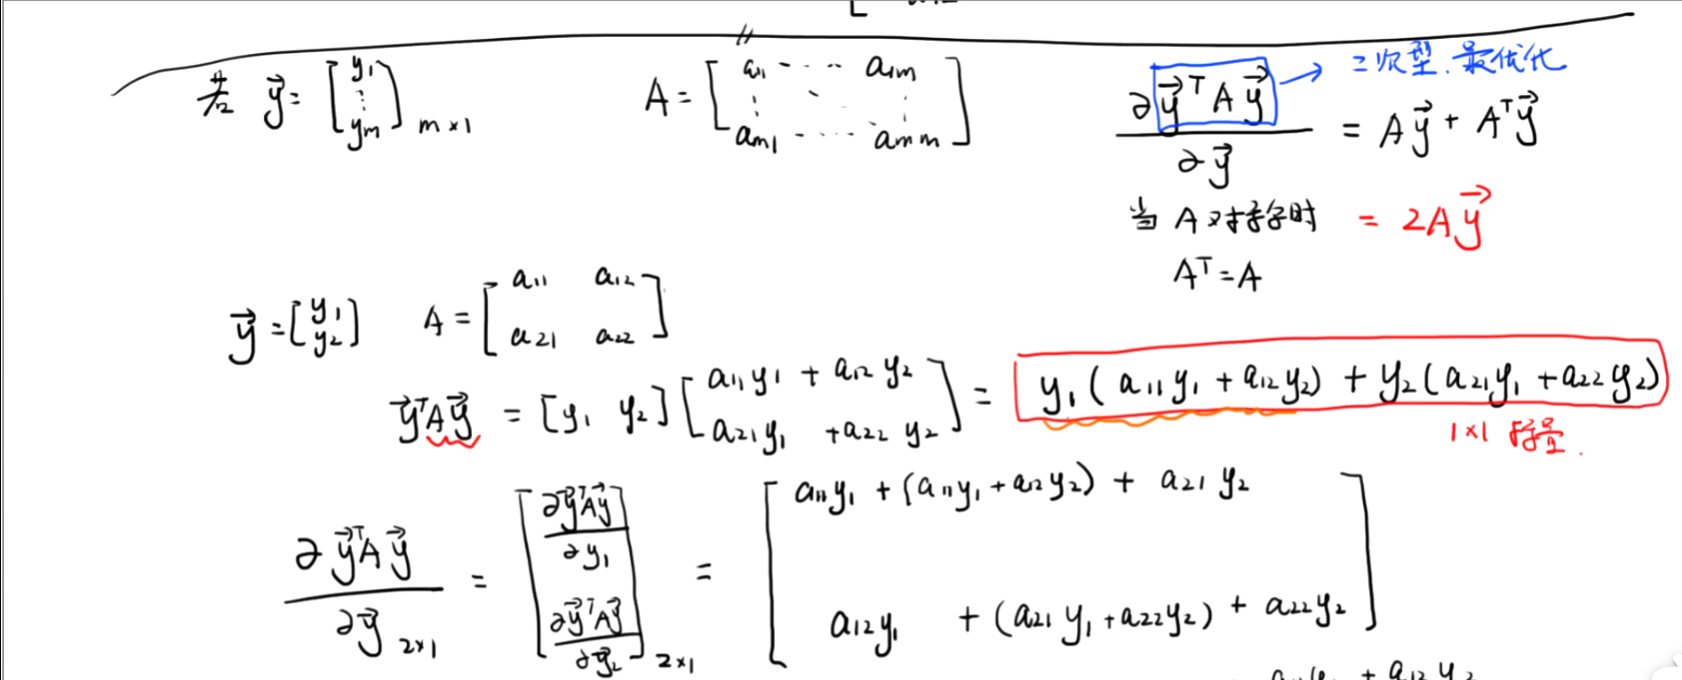 若 y⃗ = [y₁ ⋮ yₘ] m×1   A = [a₁₁ ···· a₁ₘ ⋮ ⋱ ⋮ aₘ₁ ···· aₘₘ]   ∂y⃗ᵀAy⃗ / ∂y⃗ = Ay⃗ + Aᵀy⃗ → 二次型. 最优化
当 A 对称时 = 2Ay⃗
Aᵀ = A
y⃗ = [y₁ y₂]   A = [a₁₁ a₁₂ a₂₁ a₂₂]
y⃗ᵀAy⃗ = [y₁ y₂] [a₁₁y₁ + a₁₂y₂ a₂₁y₁ + a₂₂y₂] = y₁(a₁₁y₁ + a₁₂y₂) + y₂(a₂₁y₁ + a₂₂y₂)
1×1 标量.
∂y⃗ᵀAy⃗ / ∂y⃗ 2×1 = [∂y⃗ᵀAy⃗ / ∂y₁ ∂y⃗ᵀAy⃗ / ∂y⃗₂] 2×1 = [a₁₁y₁ + (a₁₁y₁ + a₁₂y₂) + a₂₁y₂ a₁₂y₁ + (a₂₁y₁ + a₂₂y₂) + a₂₂y₂]